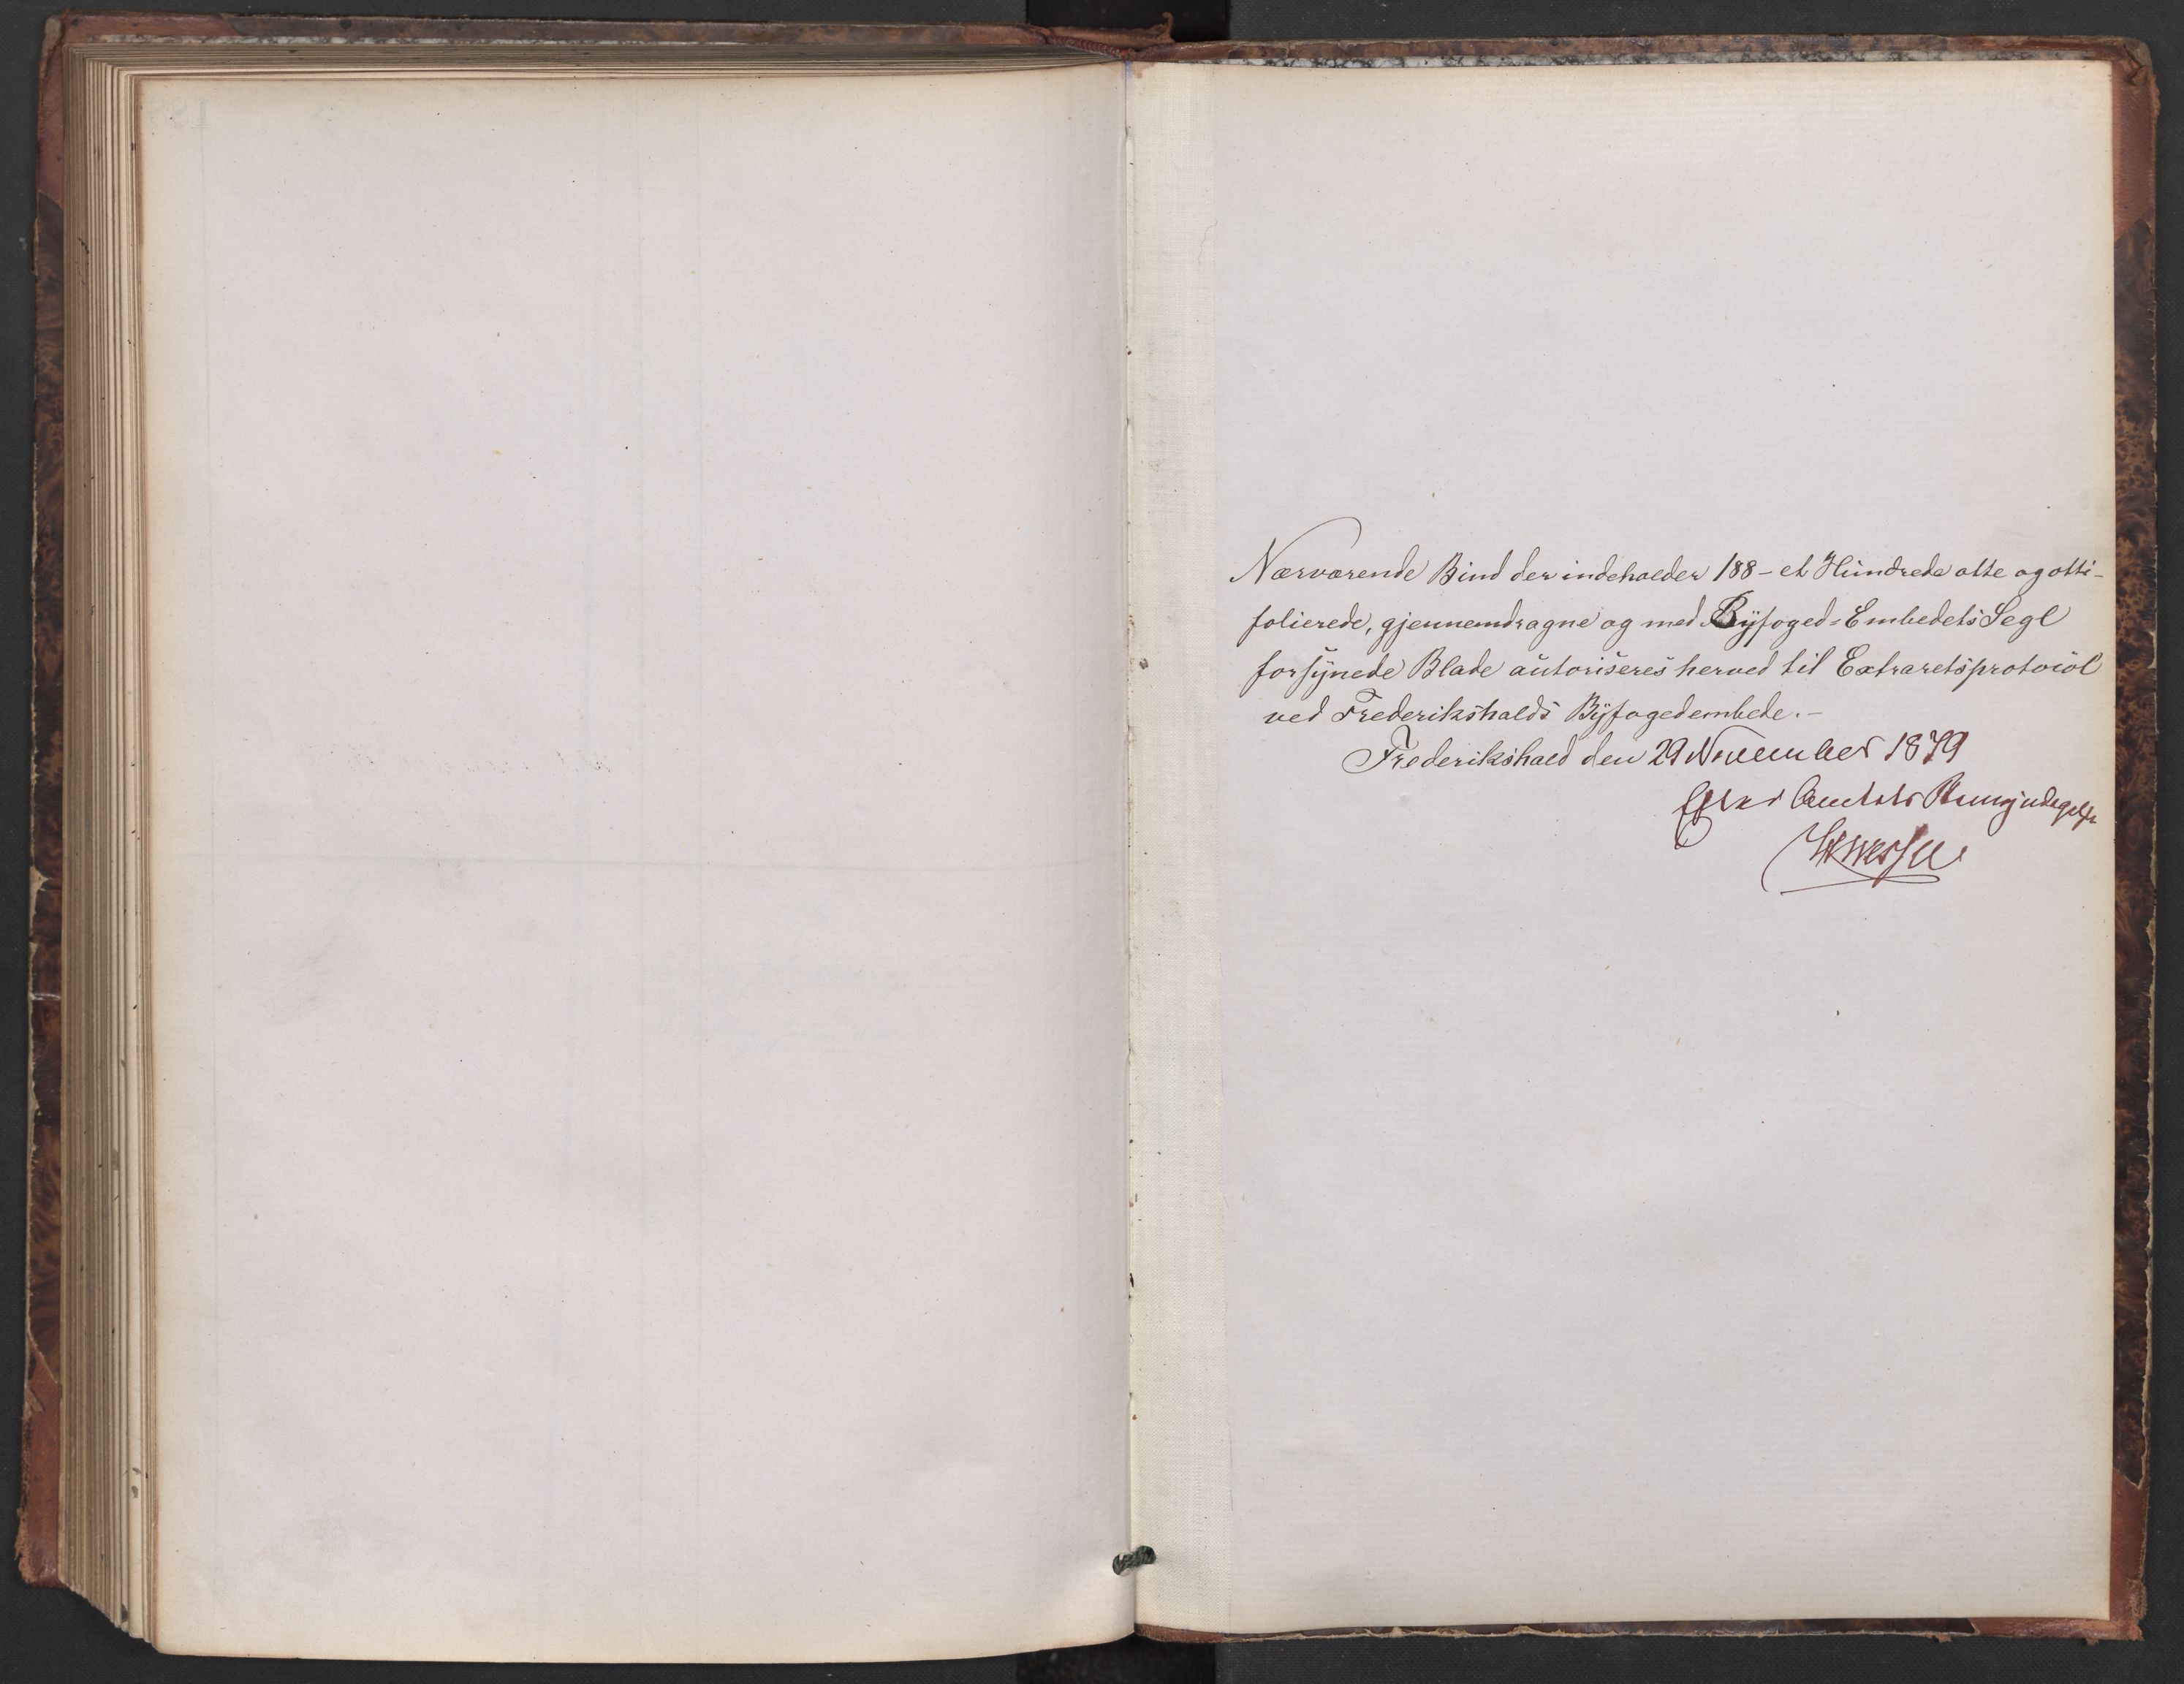 Nærværende Bind der indeholder 188 – et Hundrede otte og otti –
folierede, gjennemdragne og med Byfoged-Embedets Segl
forsynede Blade autoriseres herved til Extraretsprotocol
ved Frederikshalds Byfogedembede. –
Frederikshald den 29 November 1879